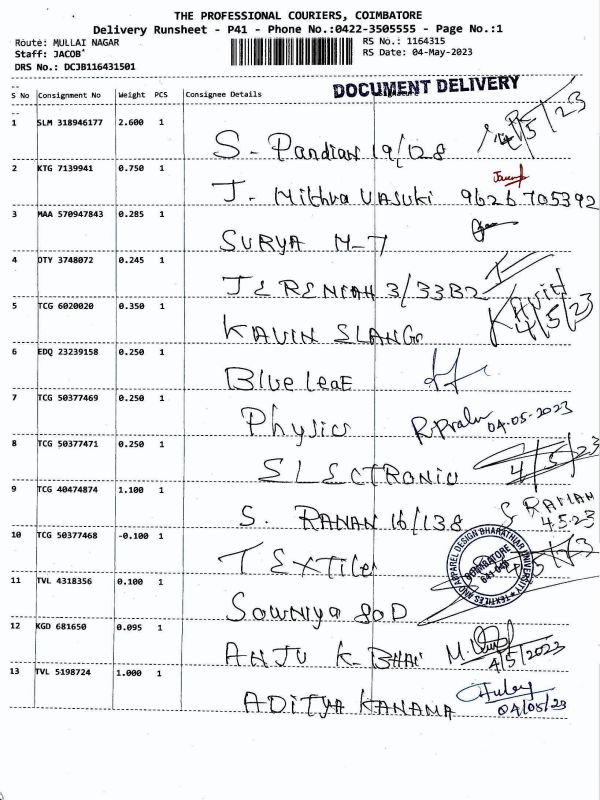 THE PROFESSIONAL COURIERS, COIMBATORE
Delivery Runsheet - P41 - Phone No.:0422-3505555 - Page No.:1
Route: MULLAI NAGAR
RS No.: 1164315
Staff: JACOB*
RS Date: 04-May-2023
DRS No.: DCJB116431501
DOCUMENT DELIVERY
S No Consignment No Weight PCS Consignee Details Signature
1 SLM 318946177 2.600 1
S. Pandian 19/128 4/5/23
2 KTG 7139941 0.750 1
J. Mithra Vasuki 9626705392
3 MAA 570947843 0.285 1
SURYA M-7
4 OTY 3748072 0.245 1
JEREMIAH 3/33B2
5 TCG 6020020 0.350 1
KAVIN ELANGO KAVIN 4/5/23
6 EDQ 23239158 0.250 1
Blue leaE
7 TCG 50377469 0.250 1
Physics R.Prabu 04-05-2023
8 TCG 50377471 0.250 1
ELECTRONIC 4/5/23
9 TCG 40474874 1.100 1
S. RAMAN 16/138 S RAMAN 4.5.23
10 TCG 50377468 -0.100 1
TEXTILE
TEXTILES AND APPAREL DESIGN BHARATHIAR UNIVERSITY
COIMBATORE 641 046
11 TVL 4318356 0.100 1
Sowmiya
12 KGD 681650 0.095 1
ANJU K-BHAI 4/5/2023
13 TVL 5198724 1.000 1
ADITYA KANAMA 04/05/23